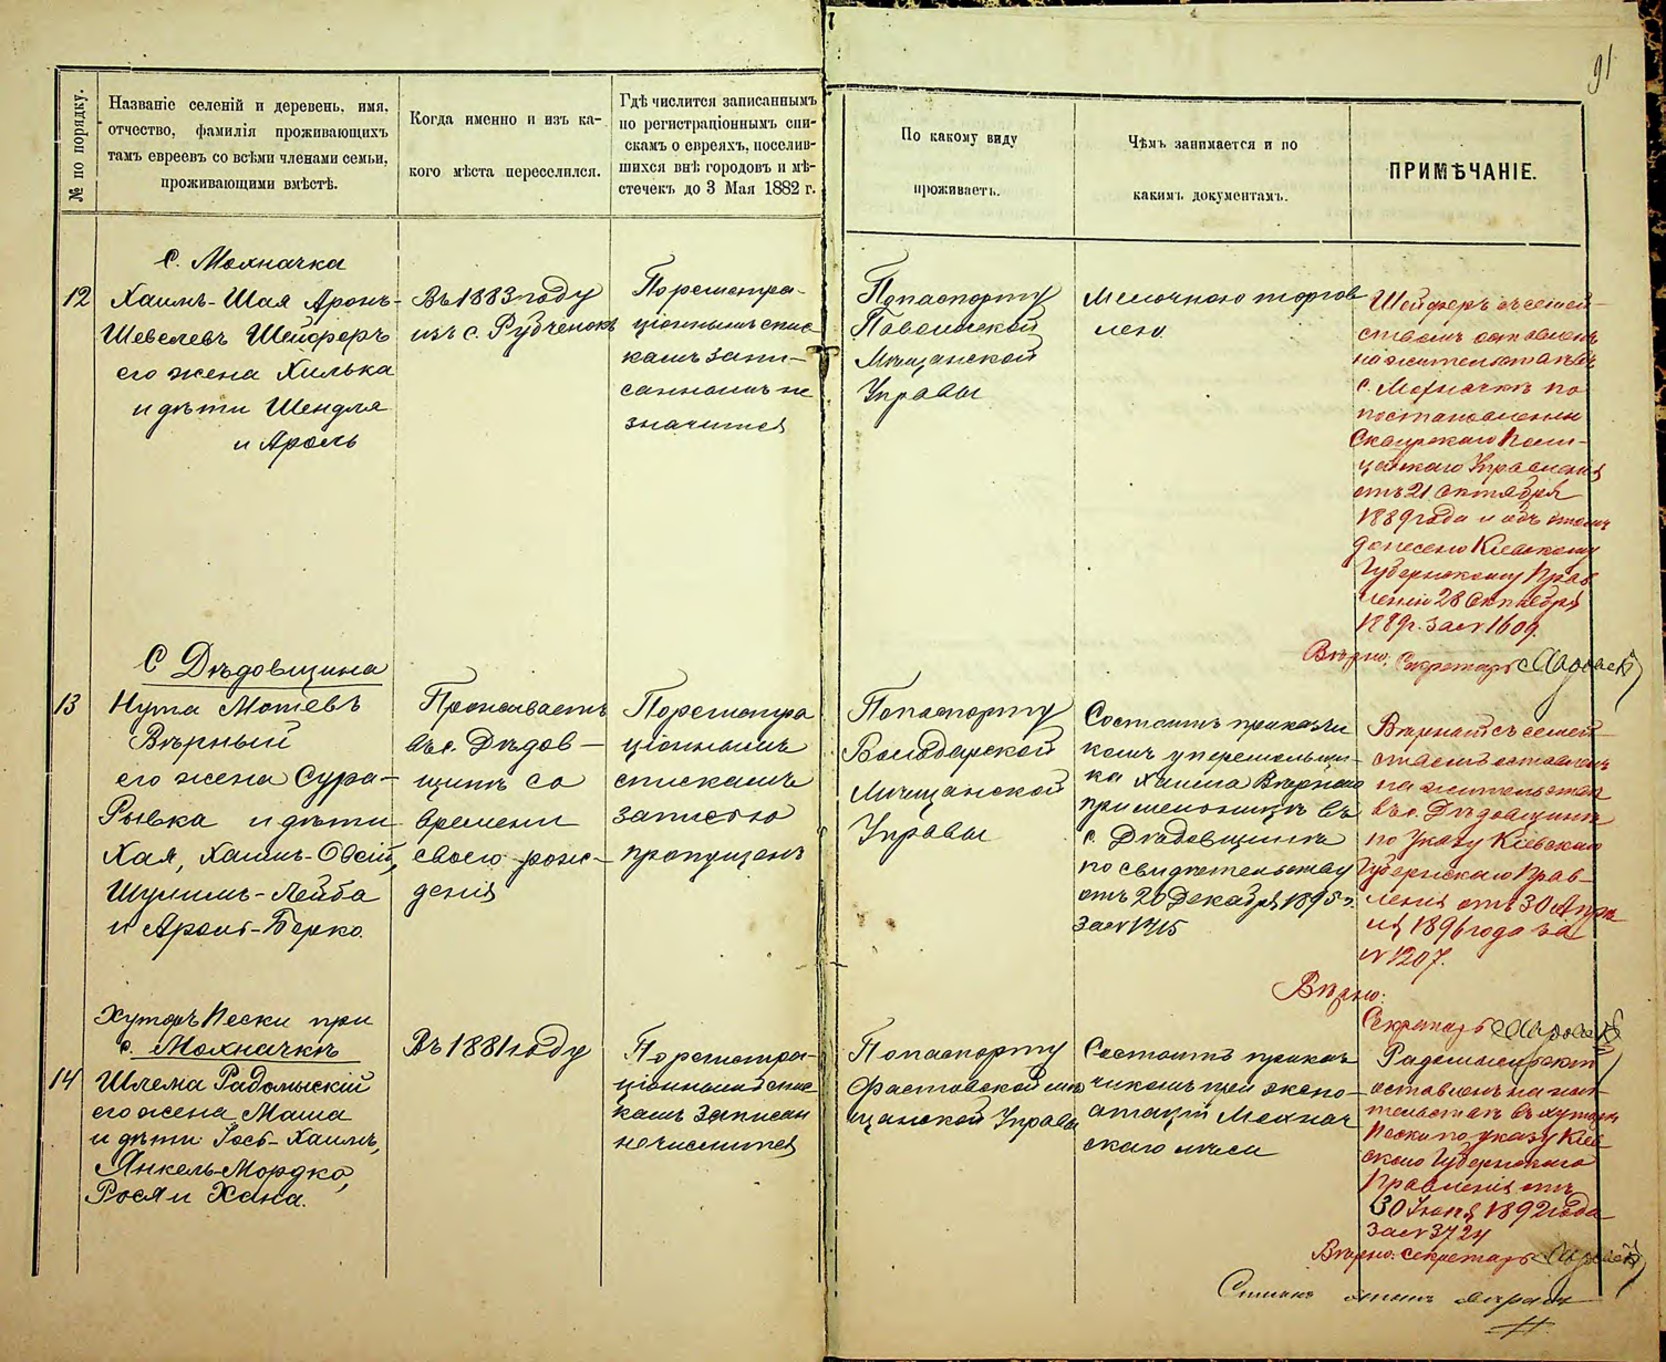 91
№ по порядку.
Названіе селеній и деревень, имя,
отчество, фамилія проживающихъ
тамъ евреевъ со всѣми членами семьи,
проживающими вмѣстѣ.
Когда именно и изъ ка-
кого мѣста переселился.
Гдѣ числится записаннымъ
по регистраціоннымъ спи-
скамъ о евреяхъ, поселив-
шихся внѣ городовъ и мѣ-
стечекъ до 3 Мая 1882 г.
По какому виду
проживаетъ.
Чѣмъ занимается и по
какимъ документамъ.
ПРИМѢЧАНІЕ.
С. Мохначка
12
Хаимъ-Шая Аронъ-
Шевелевъ Шейферъ
его жена Хилька
и дѣти Шендля
и Арель
Въ 1883 году
изъ с. Рубченокъ
По регистра-
ціоннымъ спис-
камъ запи-
саннымъ не
значится
По паспорту
Паволочской
Мѣщанской
Управы
Мелочною торгов
лею
Шейферъ съ семей-
ствомъ оставленъ
на жительствѣ въ
с. Мохначкѣ по
постановленію
Сквирскаго Поли-
цейскаго Управленія
отъ 21 Октября
1889 года и объ этомъ
донесено Кіевскому
Губернскому Прав
ленію 28 Октября
1889 г. за № 1609.
Вѣрно: Секретарь
С Дѣдовщина
13
Нута Мотевъ
Вѣрный
его жена Сура-
Рывка и дѣти
Хая, Хаимъ-Овсій,
Шулимъ-Лейба
и Аронъ-Берко.
Проживаетъ
въ с. Дѣдов-
щинѣ со
времени
своего рож-
денія
По регистра
ціоннымъ
спискамъ
записью
пропущенъ
По паспорту
Володарской
Мѣщанской
Управы
Состоитъ приказчи
комъ у перемольщи-
ка Хаима Вѣрнаго
при мельницѣ въ
с. Дѣдовщинѣ
по свидѣтельству
отъ 20 Декабря 1895 г.
за № 1415
Вѣрный съ семей-
ствомъ оставленъ
на жительствѣ
въ с. Дѣдовщинѣ
по Указу Кіевскаго
Губернскаго Прав-
ленія отъ 30 Апрѣ
ля 1896 года за
№ 1207.
Вѣрно:
Секретарь
Хуторъ Пески при
с. Мохначкѣ
14
Шлема Радомыскій
его жена Маша
и дѣти: Іось-Хаимъ,
Янкель-Мордко,
Рося и Хана.
Въ 1881 году
По регистра-
ціоннымъ спис
камъ записан
не числится
По паспорту
Фастовской мѣ
щанской Управы
Состоитъ приказ
чикомъ при эксп-
оатаціи Мохнач
скаго лѣса
Радомысльскій
оставленъ на жи-
тельствѣ въ хуторѣ
Пески по указу Кіев
скаго Губернскаго
Правленія отъ
30 Іюня 1892 года
за № 3724
Вѣрно: Секретарь